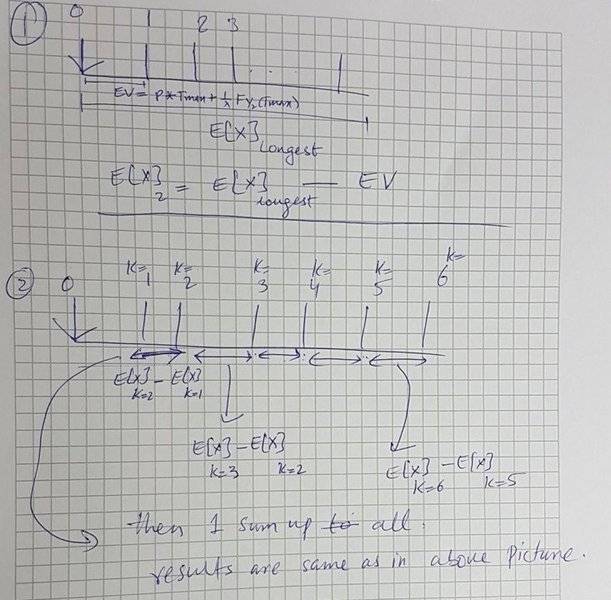 ①
0 1 2 3 . . .
EV = p*Tmax + 1/λ Fy₂(Tmax)
E[X] longest
E[X] 2 = E[X] longest — EV
②
0 K=1 K=2 K=3 K=4 K=5 K=6
E[X] K=2 - E[X] K=1
E[X] K=3 - E[X] K=2
E[X] K=6 - E[X] K=5
then I sum up to all.
results are same as in above picture.